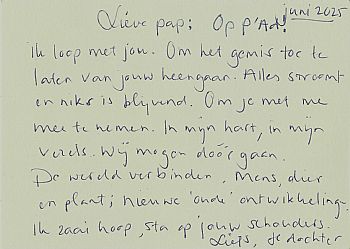 juni 2025
Lieve pap; Op p'Ad!
Ik loop met jou. Om het gemis toe te
laten van jouw heengaan. Alles stroomt
en niks is blijvend. Om je met me
mee te nemen. In mijn hart, in mijn
vezels. Wij mogen dóór gaan.
De wereld verbinden, Mens, dier
en plant; nieuwe 'oude' ontwikkeling.
Ik zaai hoop, sta op jouw schouders.
Liefs, je dochter